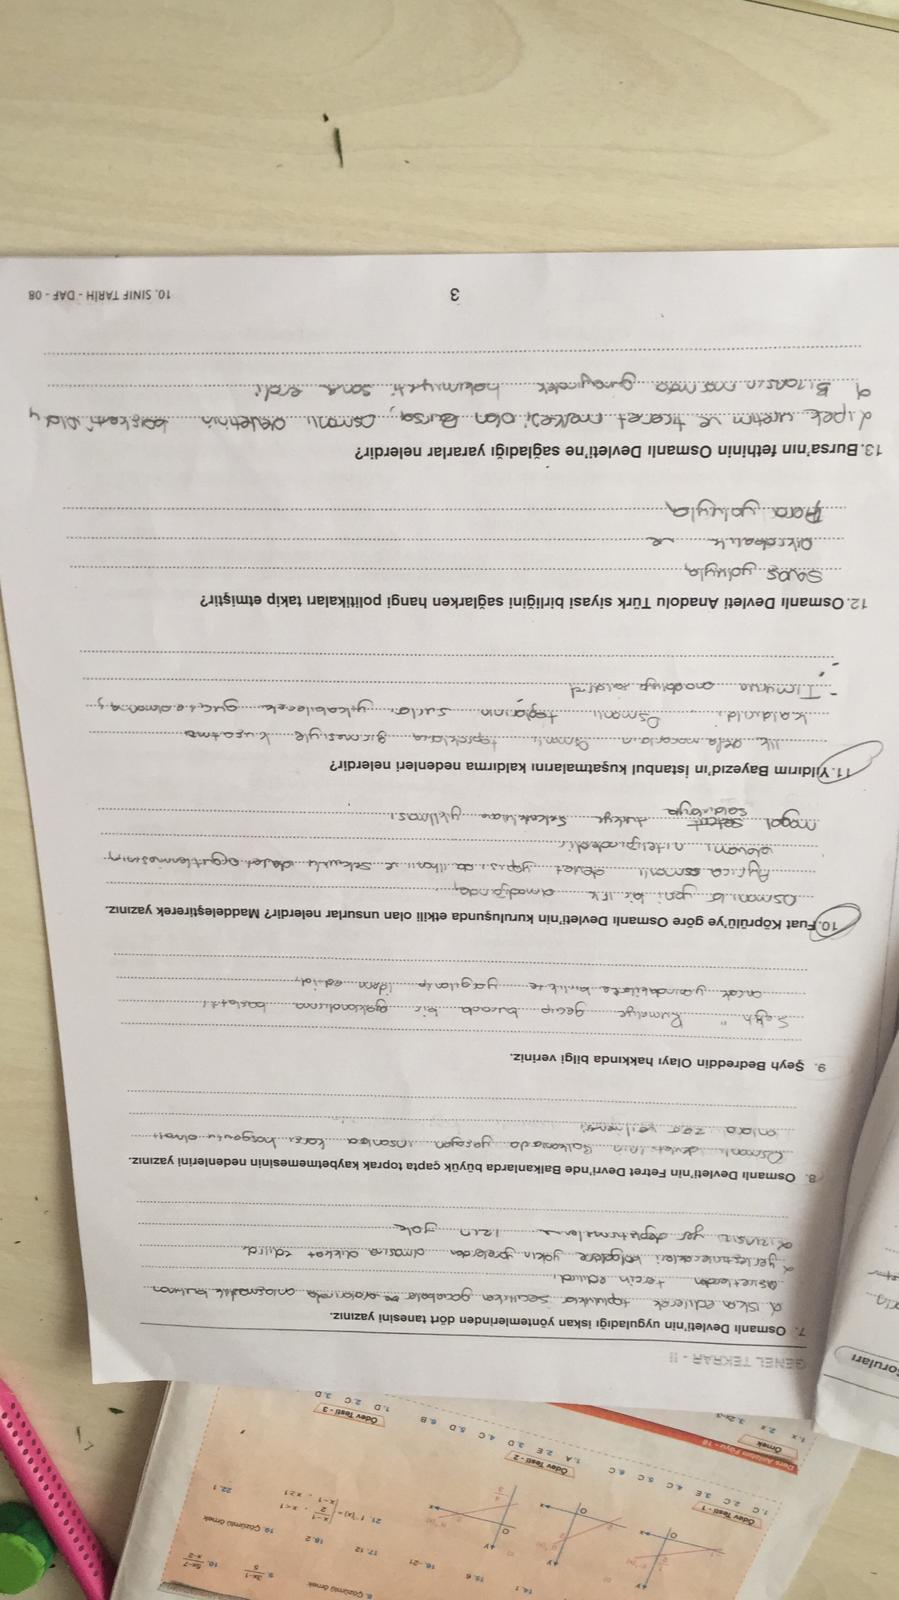 GENEL TEKRAR - II
7. Osmanlı Devleti'nin uyguladığı iskan yöntemlerinden dört tanesini yazınız.
iskan edilecek topluluklar seçilirken gocebeler aralarında anlaşmazlık bulunan
aşiretlerden tercih edilird.
yerleştirilecekleri bölgelere yakın yörelerden olmasına dikkat edilird
izinsiz yer değiştirmelerine izin yok
8. Osmanlı Devleti'nin Fetret Devri'nde Balkanlarda büyük çapta toprak kaybetmemesinin nedenlerini yazınız.
Osmanlı devletinin Balkanlarda yaşayan insanlara karşı hoşgörülü olması
onlara zarar verilmemesi
9. Şeyh Bedreddin Olayı hakkında bilgi veriniz.
Şeyh Rumeliye geçip burada bir ayaklandırma başlattı
ancak yanındakilerle birlikte yargılanıp idam edildi.
10. Fuat Köprülü'ye göre Osmanlı Devleti'nin kuruluşunda etkili olan unsurlar nelerdir? Maddeleştirerek yazınız.
Osmanlılar yeni bir ırk olmadığından,
Ayrıca osmanlı devlet yapısı da ilhanlı ve selçuklu devlet örgütlenmesinin
devamı niteliğindedir.
mogol saldırıları türkiye Selçuklularının yıkılması
11. Yıldırım Bayezıd'ın İstanbul kuşatmalarını kaldırma nedenleri nelerdir?
İlk defa macarların Osmanlı topraklarına girmesiyle kuşatma
kaldırıldı Osmanlı toplarının surları yıkabilecek güçte olmaması
- Timurun anadoluya saldırd
-
12. Osmanlı Devleti Anadolu Türk siyasi birliğini sağlarken hangi politikaları takip etmiştir?
Savaş yoluyla
Akrabalık ve
Para yoluyla
13. Bursa'nın fethinin Osmanlı Devleti'ne sağladığı yararlar nelerdir?
ipek üretim ve ticaret merkezi olan Bursa, Osmanlı devletinin başkenti oldu
Bizansın marmara güneyindeki hakimiyeti sona erdi.
3
10. SINIF TARİH - DAF - 08
Soruları
Çözümlü örnek
14. 1
15. 6
16. -21
17. 12
18. 2
19. Çözümlü örnek
22. 1
Ödev Testi - 1
1. C 2. C 3. E 4. C 5. C 6. C
Ödev Testi - 2
1. A 2. E 3. D 4. C 5. D 6. B
Ödev Testi - 3
1. D 2. C 3. D
Örnek